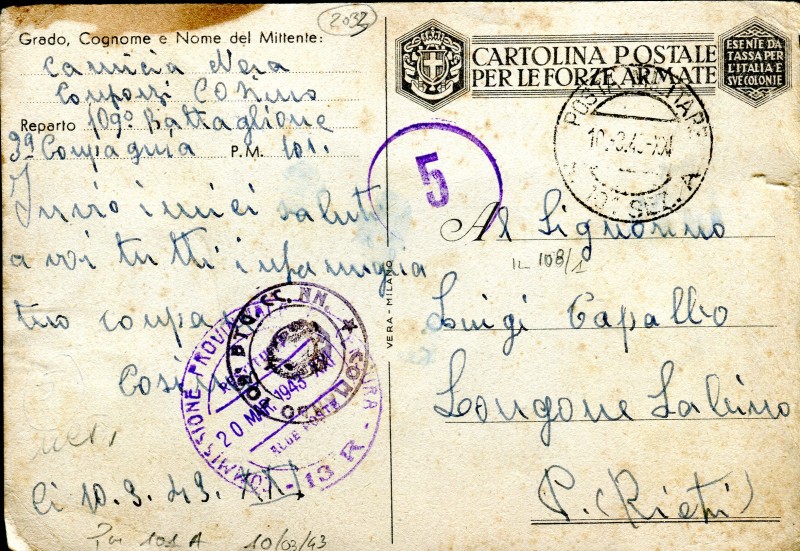 2032
Grado, Cognome e Nome del Mittente:
Camicia Nera
Cosimo
Reparto 109º Battaglione
3ª Compagnia P. M. 101.
Invio i miei saluti
a voi tutti in famiglia
tuo compa
Cosimo
li 10.3.43. XXI
P.M 101 A 10/03/43
CARTOLINA POSTALE
PER LE FORZE ARMATE
ESENTE DA
TASSA PER
L'ITALIA E
SVE COLONIE
POSTA MILITARE
10.-3.43-XXI
SEZ. A
5
VERA - MILANO
Al Signorino
IL 108/1
Luigi Capalbo
Longone Sabino
P. (Rieti)
COMMISSIONE PROVINCIALE CENSURA - 13 R -
20 MAR. 1943 XXI
BTG. CC. NN. ★ COMANDO